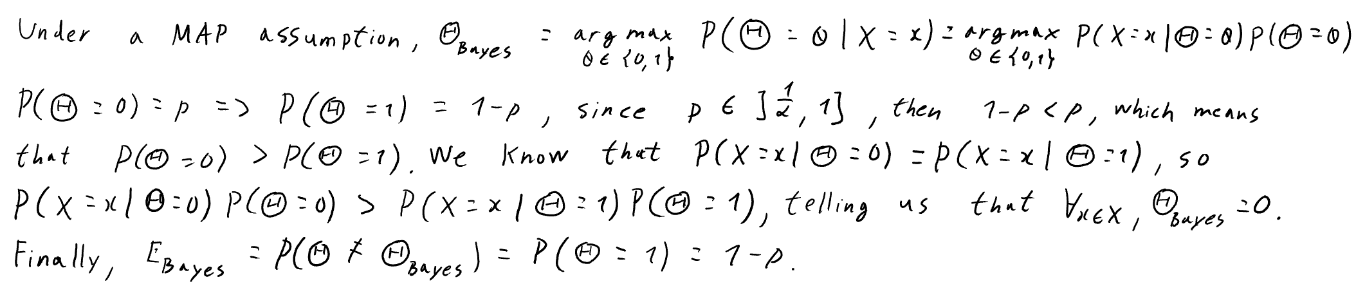 Under a MAP assumption, Θ_Bayes = arg max_{θ∈{0,1}} P(Θ=θ|X=x) = arg max_{θ∈{0,1}} P(X=x|Θ=θ)P(Θ=θ)
P(Θ=0)=p => P(Θ=1) = 1-p, since p ∈ ]1/2, 1], then 1-p<p, which means
that P(Θ=0) > P(Θ=1). We know that P(X=x|Θ=0) = P(X=x|Θ=1), so
P(X=x|Θ=0)P(Θ=0) > P(X=x|Θ=1)P(Θ=1), telling us that ∀x∈X, Θ_Bayes=0.
Finally, E_Bayes = P(Θ ≠ Θ_Bayes) = P(Θ=1) = 1-p.